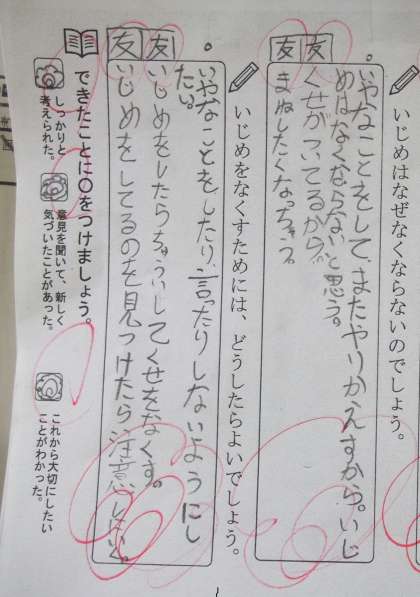 いじめはなぜなくならないのでしょう。
いやなことをして、またやりかえすから。いじ
めはなくならないと思う。
友くせがついてるから。
友まねしたくなっちゃう。
いじめをなくすためには、どうしたらよいでしょう。
いやなことをしたり、言ったりしないようにし
たい。
友いじめをしたらちゅういしてくせをなくす。
友いじめをしてるのを見つけたら注意しにいく。
できたことに○をつけましょう。
しっかりと
考えられた。
意見を聞いて、新しく
気づいたことがあった。
これから大切にしたい
ことがわかった。